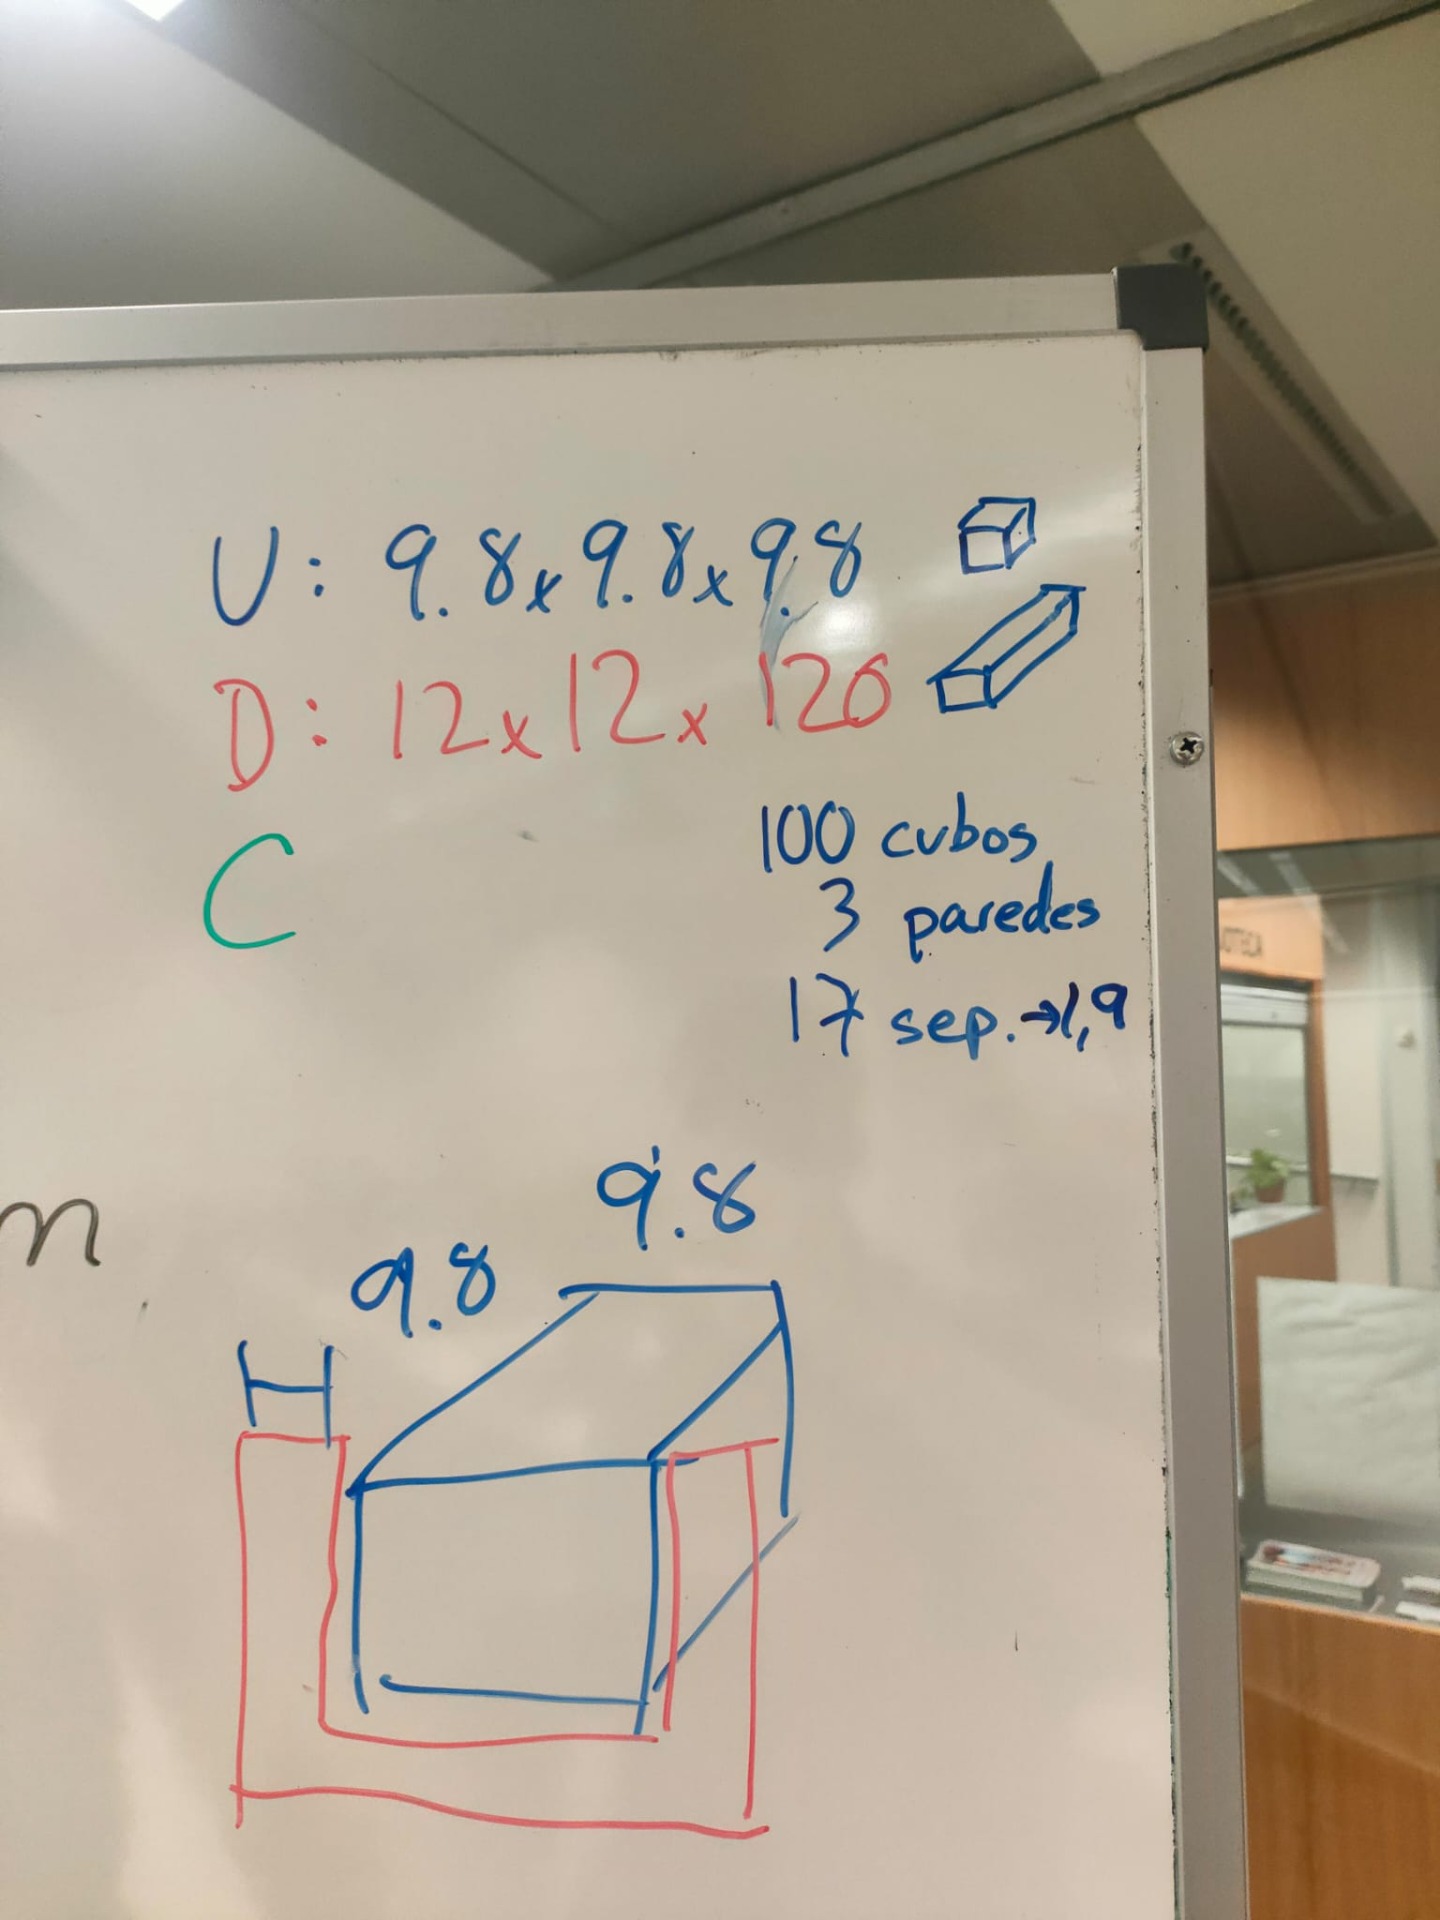 U: 9.8x9.8x9.8
D: 12x12x120
C
100 cubos
3 paredes
17 sep.→1,9
n
9.8
9.8